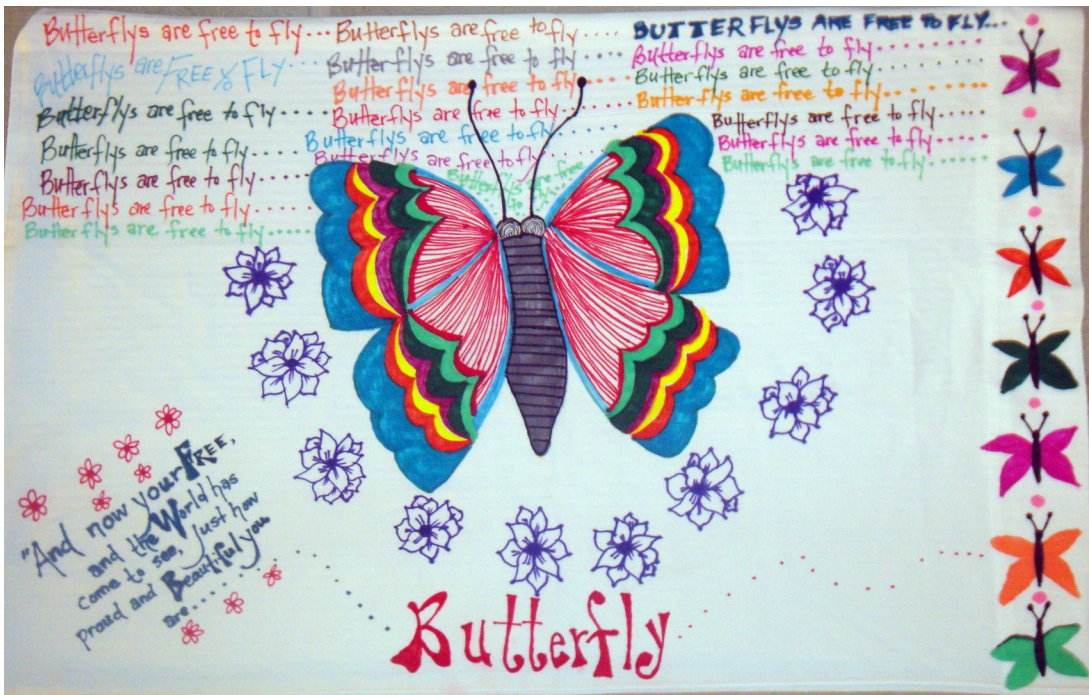 Butterflys are free to fly...
Butterflys are FREE to FLY...
Butterflys are free to fly.....
Butterflys are free to fly....
Butterflys are free to fly....
Butterflys are free to fly.....
Butterflys are free to fly.....
Butterflys are free to fly....
Butterflys are free to fly...
Butterflys are free to fly.....
Butterflys are free to fly.....
Butterflys are free to fly......
Butterflys are free to fly.....
Butterflys are free
to
fly
BUTTERFLYS ARE FREE TO FLY...
Butterflys are free to fly.......
Butterflys are free to fly.......
Butterflys are free to fly.......
Butterflys are free to fly.....
Butterflys are free to fly......
Butterflys are free to fly.....
"And now your FREE,
and the World has
come to see, Just how
proud and Beautiful you
are.......
Butterfly